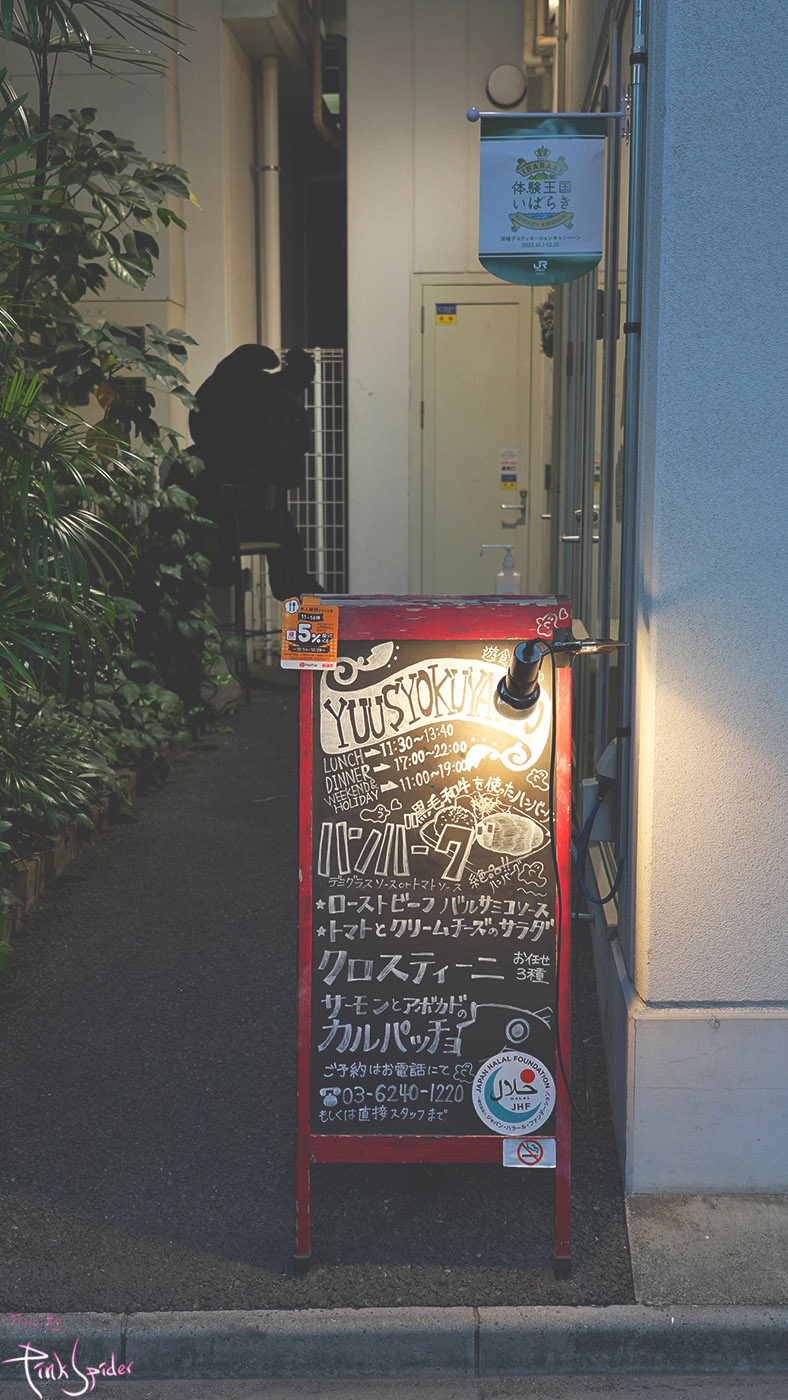 IBARAKI
体験王国
いばらき
茨城デスティネーションキャンペーン
2023.10.1-12.31
JR
11~14時
5%
PayPay
遊食
YUUSYOKUYA
LUNCH → 11:30~13:40
DINNER → 17:00~22:00
WEEKEND & HOLIDAY → 11:00~19:00
黒毛和牛を使ったハンバーグ
ハンバーグ
デミグラスソース or トマトソース
絶品!!
ハンバーグ
★ローストビーフ バルサミコソース
★トマトとクリームチーズのサラダ
クロスティーニ お任せ3種
サーモンとアボカドの
カルパッチョ
ご予約はお電話にて
☎03-6240-1220
もしくは直接スタッフまで
JAPAN HALAL FOUNDATION
حلال
HALAL
JHF
一般社団法人ジャパン・ハラール・ファンデーション
Pink Spider